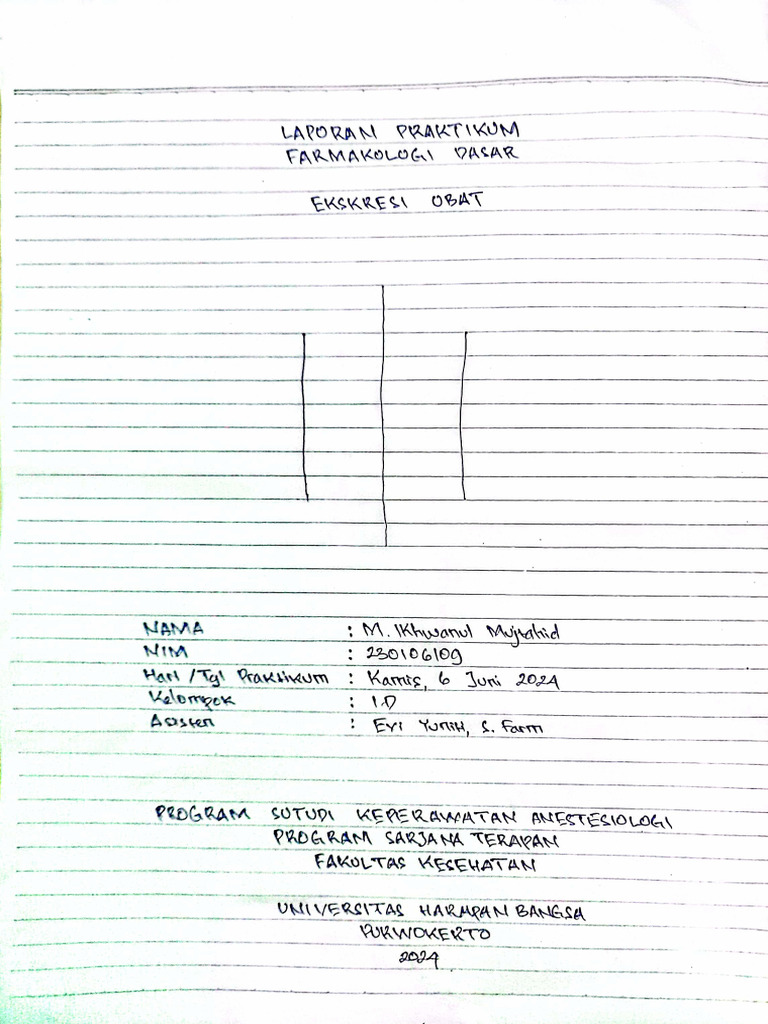 LAPORAN PRAKTIKUM
FARMAKOLOGI DASAR
EKSKRESI OBAT
NAMA : M. IKhwanul Mujtahid
NIM : 230106109
Hari / Tgl Praktikum : Kamis, 6 Juni 2024
Kelompok : 1.D
Asisten : Evi Yuniti, S. Farm
PROGRAM SUTUDI KEPERAWATAN ANESTESIOLOGI
PROGRAM SARJANA TERAPAN
FAKULTAS KESEHATAN
UNIVERSITAS HARAPAN BANGSA
PURWOKERTO
2024